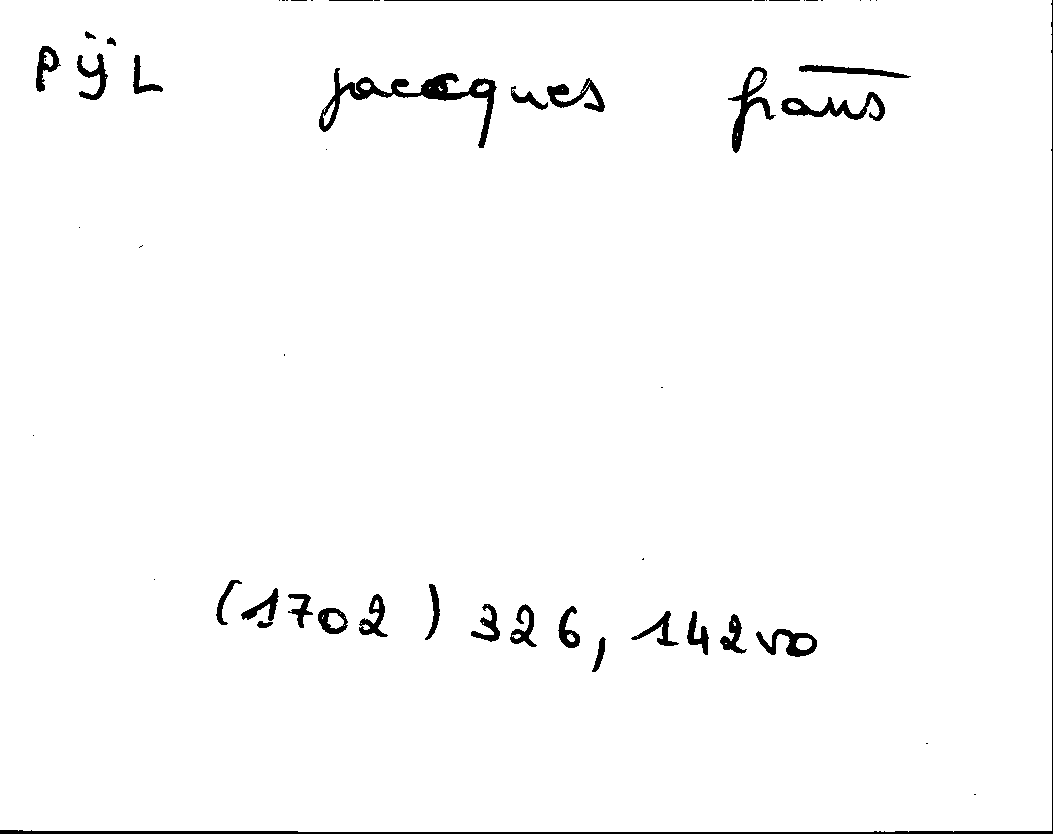 PÿL jaccques frans
(1702) 326, 142vo